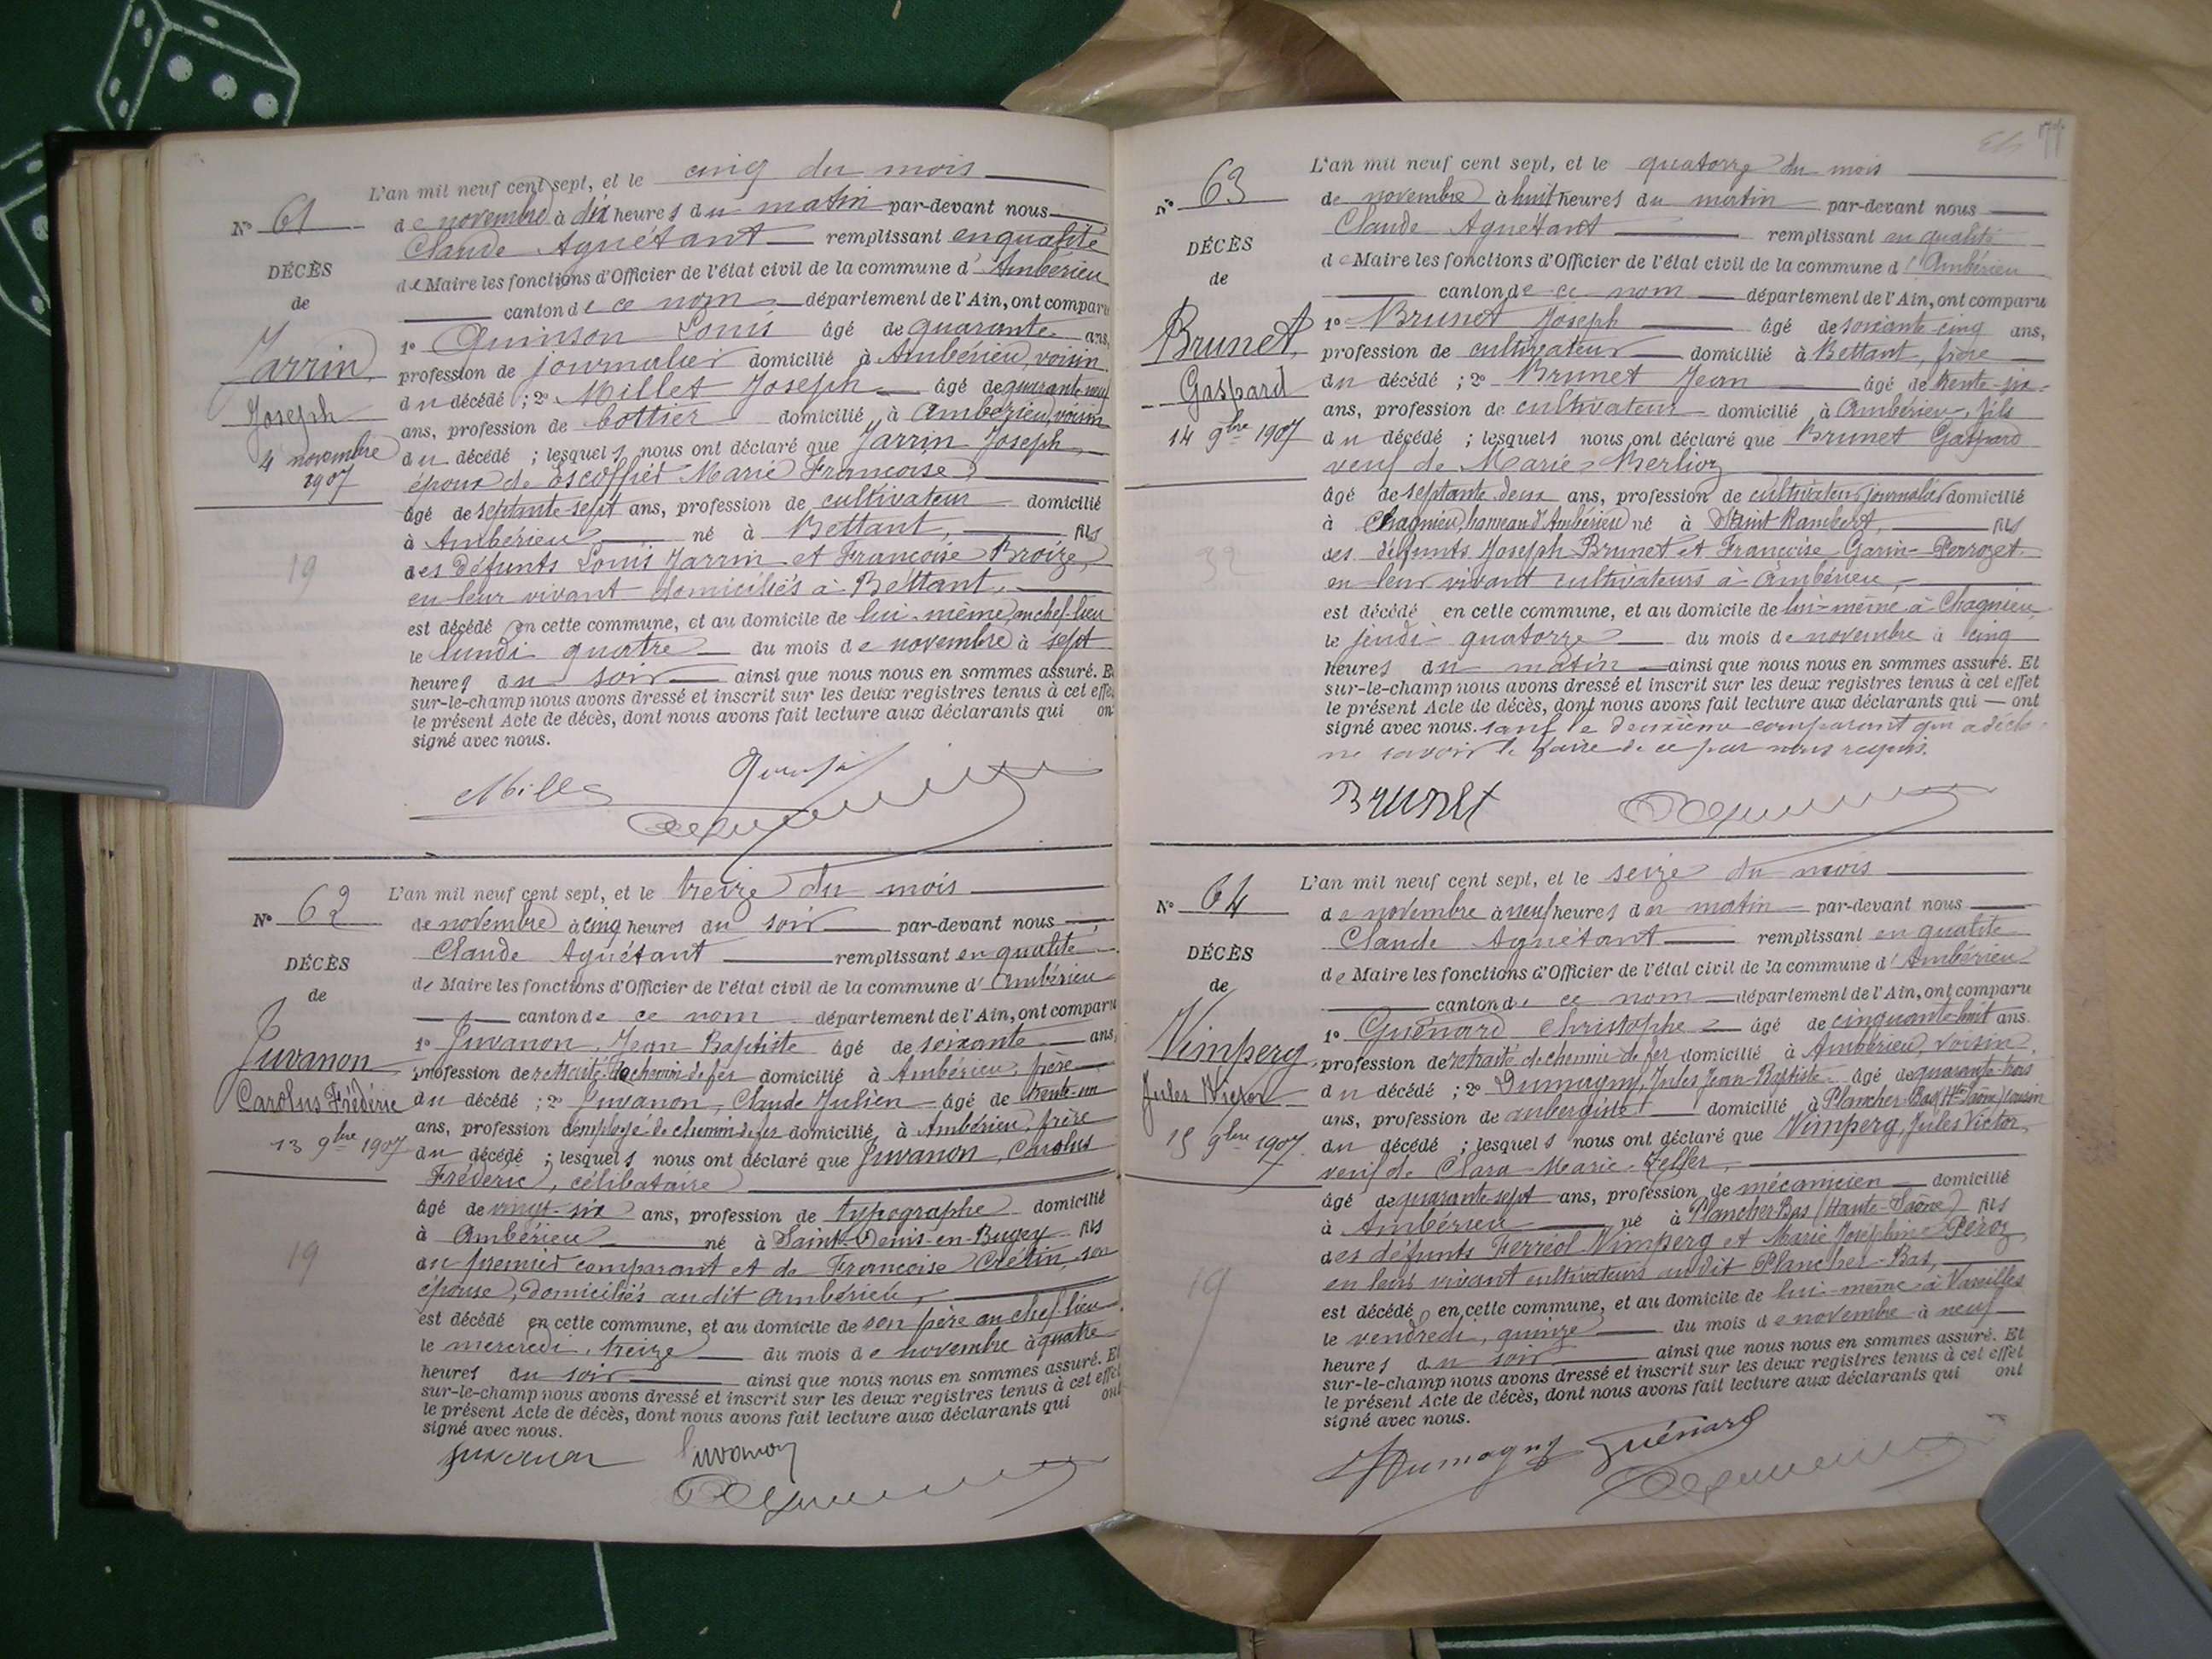 N° 61
DÉCÈS
de
Jarrin
Joseph
4 novembre
1907
19
L'an mil neuf cent sept, et le cinq du mois
de novembre à dix heures du matin par-devant nous
Claude Agnétant remplissant en qualité
de Maire les fonctions d'Officier de l'état civil de la commune d'Ambérieu
canton de ce nom département de l'Ain, ont comparu
1° Quinson Louis âgé de quarante ans,
profession de journalier domicilié à Ambérieu, voisin
du décédé ; 2° Millet Joseph âgé de quarante neuf
ans, profession de bottier domicilié à Ambérieu, voisin
du décédé ; lesquels nous ont déclaré que Jarrin Joseph
époux de Escoffier Marie Françoise,
âgé de septante sept ans, profession de cultivateur domicilié
à Ambérieu né à Bettant, fils
des défunts Louis Jarrin et Françoise Broize,
en leur vivant domiciliés à Bettant,
est décédé en cette commune, et au domicile de lui-même au chef-lieu
le lundi quatre du mois de novembre à sept
heures du soir ainsi que nous nous en sommes assuré. Et
sur-le-champ nous avons dressé et inscrit sur les deux registres tenus à cet effet
le présent Acte de décès, dont nous avons fait lecture aux déclarants qui ont
signé avec nous.
N° 62
DÉCÈS
de
Juvanon
Carolus Frédéric
13 9bre 1907
19
L'an mil neuf cent sept, et le treize du mois
de novembre à cinq heures du soir par-devant nous
Claude Agnétant remplissant en qualité
de Maire les fonctions d'Officier de l'état civil de la commune d'Ambérieu
canton de ce nom département de l'Ain, ont comparu
1° Juvanon, Jean Baptiste âgé de soixante ans,
profession de retraité de chemin de fer domicilié à Ambérieu, père
du décédé ; 2° Juvanon, Claude Julien âgé de trente-un
ans, profession d'employé de chemin de fer domicilié à Ambérieu, frère
du décédé ; lesquels nous ont déclaré que Juvanon, Carolus
Frédéric, célibataire
âgé de vingt-six ans, profession de typographe domicilié
à Ambérieu né à Saint-Denis-en-Bugey fils
du premier comparant et de Françoise Crétin, son
épouse, domiciliés audit Ambérieu,
est décédé en cette commune, et au domicile de son père au chef-lieu
le mercredi, treize du mois de novembre à quatre
heures du soir ainsi que nous nous en sommes assuré. Et
sur-le-champ nous avons dressé et inscrit sur les deux registres tenus à cet effet
le présent Acte de décès, dont nous avons fait lecture aux déclarants qui ont
signé avec nous.
Juvanon Juvanon
N° 63
DÉCÈS
de
Brunet,
Gaspard
14 9bre 1907
32
L'an mil neuf cent sept, et le quatorze du mois
de novembre à huit heures du matin par-devant nous
Claude Agnétant remplissant en qualité
de Maire les fonctions d'Officier de l'état civil de la commune d'Ambérieu
canton de ce nom département de l'Ain, ont comparu
1° Brunet Joseph âgé de soixante cinq ans,
profession de cultivateur domicilié à Bettant, frère
du décédé ; 2° Brunet Jean âgé de trente-six
ans, profession de cultivateur domicilié à Ambérieu, fils
du décédé ; lesquels nous ont déclaré que Brunet Gaspard
veuf de Marie Merlioz
âgé de septante deux ans, profession de cultivateur journalier domicilié
à Chagnieu, hameau d'Ambérieu né à Saint Rambert, fils
des défunts Joseph Brunet et Françoise Garin-Perrozet
en leur vivant cultivateurs à Ambérieu,
est décédé en cette commune, et au domicile de lui-même à Chagnieu
le jeudi quatorze du mois de novembre à cinq
heures du matin ainsi que nous nous en sommes assuré. Et
sur-le-champ nous avons dressé et inscrit sur les deux registres tenus à cet effet
le présent Acte de décès, dont nous avons fait lecture aux déclarants qui ont
signé avec nous. sauf le deuxième comparant qui a déclaré
ne savoir le faire de ce par nous requis.
Brunet
N° 64
DÉCÈS
de
Vimperg,
Jules Victor
15 9bre 1907
19
L'an mil neuf cent sept, et le seize du mois
de novembre à neuf heures du matin par-devant nous
Claude Agnétant remplissant en qualité
de Maire les fonctions d'Officier de l'état civil de la commune d'Ambérieu
canton de ce nom département de l'Ain, ont comparu
1° Guénard Christophe âgé de cinquante-huit ans.
profession de retraité de chemin de fer domicilié à Ambérieu, voisin,
du décédé ; 2° Dumagny, Jules Jean-Baptiste âgé de quarante-trois
ans, profession de aubergiste domicilié à Plancher-Bas (Hte Saône) cousin
du décédé ; lesquels nous ont déclaré que Vimperg, Jules Victor,
veuf de Clara Marie Zeller,
âgé de quarante-sept ans, profession de mécanicien domicilié
à Ambérieu né à Plancher-Bas (Haute-Saône) fils
des défunts Ferréol Vimperg et Marie Joséphine Péroz
en leur vivant cultivateurs audit Plancher-Bas,
est décédé en cette commune, et au domicile de lui-même à Vareilles
le vendredi, quinze du mois de novembre à neuf
heures du soir ainsi que nous nous en sommes assuré. Et
sur-le-champ nous avons dressé et inscrit sur les deux registres tenus à cet effet
le présent Acte de décès, dont nous avons fait lecture aux déclarants qui ont
signé avec nous.
Dumagny Guénard